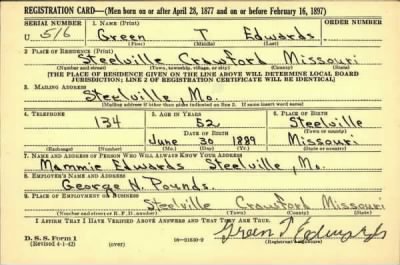 REGISTRATION CARD—(Men born on or after April 28, 1877 and on or before February 16, 1897)
SERIAL NUMBER 1. NAME (Print) ORDER NUMBER
U 516 Green T Edwards
(First) (Middle) (Last)
2. PLACE OF RESIDENCE (Print)
Steelville Crawford Missouri
(Number and street) (Town, township, village, or city) (County) (State)
[THE PLACE OF RESIDENCE GIVEN ON THE LINE ABOVE WILL DETERMINE LOCAL BOARD
JURISDICTION; LINE 2 OF REGISTRATION CERTIFICATE WILL BE IDENTICAL]
3. MAILING ADDRESS
Steelville Mo.
[Mailing address if other than place indicated on line 2. If same insert word same]
4. TELEPHONE 5. AGE IN YEARS 6. PLACE OF BIRTH
134 52 Steelville
DATE OF BIRTH (Town or county)
June 30 1889 Missouri
(Exchange) (Number) (Mo.) (Day) (Yr.) (State or country)
7. NAME AND ADDRESS OF PERSON WHO WILL ALWAYS KNOW YOUR ADDRESS
Mammie Edwards Steelville, Mo.
8. EMPLOYER'S NAME AND ADDRESS
George H. Pounds.
9. PLACE OF EMPLOYMENT OR BUSINESS
Steelville Crawford Missouri
(Number and street or R. F. D. number) (Town) (County) (State)
I AFFIRM THAT I HAVE VERIFIED ABOVE ANSWERS AND THAT THEY ARE TRUE.
D. S. S. Form 1
(Revised 4-1-42) (over) 16—21630-2 Green T Edwards
(Registrant's signature)